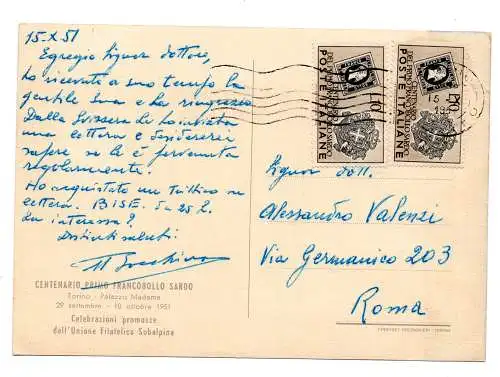 15.X.51
Egregio Signor Dottore,
ho ricevuto a suo tempo la
gentile Sua e La ringrazio
Dalla Svizzera Le ho inviato
una lettera e desidererei
sapere se Le è pervenuta
regolarmente.
Ho acquistato un trittico su
lettera. BISE. 5-25 L.
La interessa?
Distinti saluti.
CENTENARIO PRIMO FRANCOBOLLO SARDO
Torino - Palazzo Madama
29 settembre - 10 ottobre 1951
Celebrazioni promosse
dall'Unione Filatelica Subalpina
POSTE ITALIANE
20
POSTE ITALIANE
20
15
Signor dott.
Alessandro Valensi
Via Germanico 203
Roma